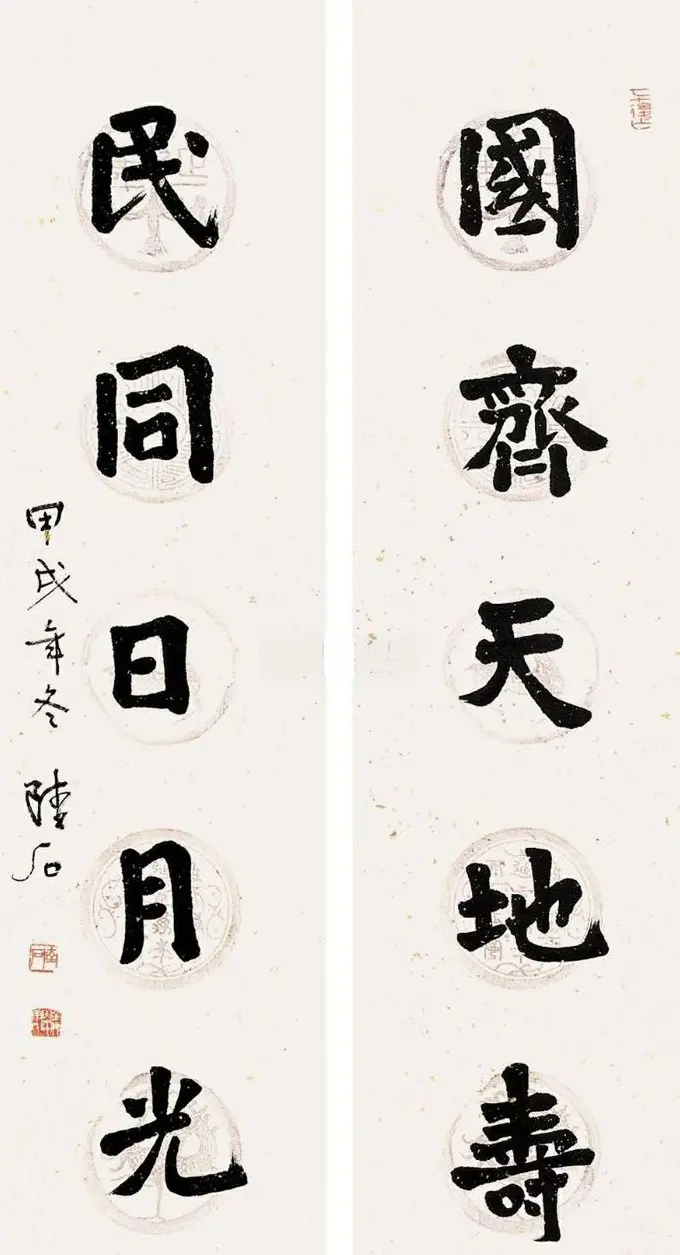 國齊天地壽
民同日月光
甲戌年冬 陸石